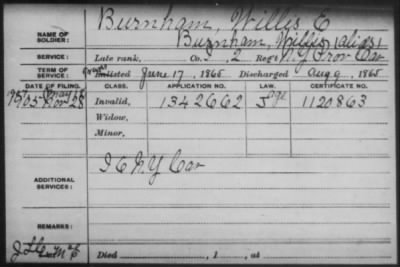 Burnham, Willis E
NAME OF SOLDIER: Burnham, Willis (alias)
SERVICE: Late rank, Co. I, 2 Reg't N.Y. Prov Cav
TERM OF SERVICE: Enlisted June 17, 1865 Discharged Aug 9, 1865
DATE OF FILING. CLASS. APPLICATION NO. LAW. CERTIFICATE NO.
Nov 28 Invalid, 1342662 1120863
Widow,
Minor,
ADDITIONAL SERVICES: I C N.Y Cav
REMARKS:
Died , 1 , at